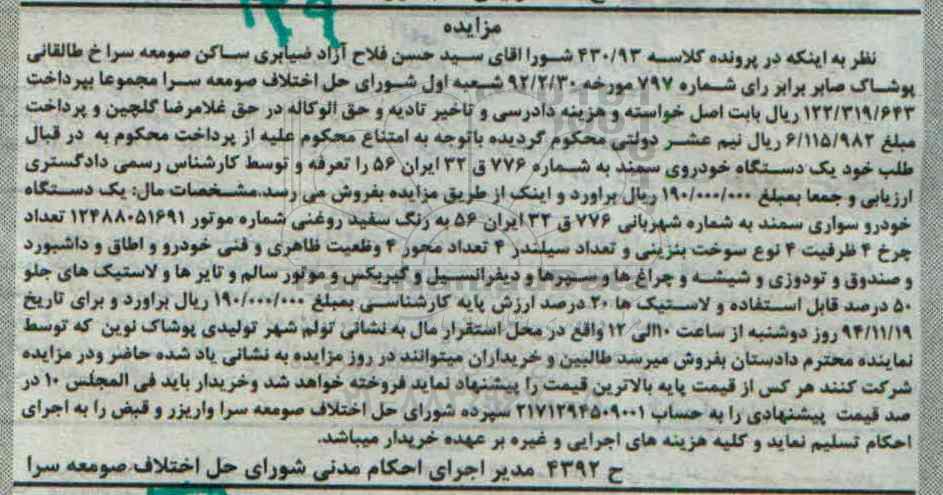 ۱۲۹
مزایده
نظر به اینکه در پرونده کلاسه ۴۳۰/۹۳ شورا اقای سید حسن فلاح آزاد ضیابری ساکن صومعه سرا خ طالقانی
پوشاک صابر برابر رای شماره ۷۹۷ مورخه ۹۲/۲/۳۰ شعبه اول شورای حل اختلاف صومعه سرا مجموعا بپرداخت
۱۲۲/۳۱۹/۶۴۳ ریال بابت اصل خواسته و هزینه دادرسی و تاخیر تادیه و حق الوکاله در حق غلامرضا گلچین و پرداخت
مبلغ ۶/۱۱۵/۹۸۲ ریال نیم عشر دولتی محکوم گردیده باتوجه به امتناع محکوم علیه از پرداخت محکوم به در قبال
طلب خود یک دستگاه خودروی سمند به شماره ۷۷۶ ق ۳۲ ایران ۵۶ را تعرفه و توسط کارشناس رسمی دادگستری
ارزیابی و جمعا بمبلغ ۱۹۰/۰۰۰/۰۰۰ ریال براورد و اینک از طریق مزایده بفروش می رسد.مشخصات مال: یک دستگاه
خودرو سواری سمند به شماره شهربانی ۷۷۶ ق ۳۲ ایران ۵۶ به رنگ سفید روغنی شماره موتور ۱۲۴۸۸۰۵۱۶۹۱ تعداد
چرخ ۴ ظرفیت ۴ نوع سوخت بنزینی و تعداد سیلندر ۴ تعداد محور ۴ وظعیت ظاهری و فنی خودرو و اطاق و داشبورد
و صندوق و تودوزی و شیشه و چراغ ها و سپرها و دیفرانسیل و گیربکس و موتور سالم و تایر ها و لاستیک های جلو
۵۰ درصد قابل استفاده و لاستیک ها ۲۰ درصد ارزش پایه کارشناسی بمبلغ ۱۹۰/۰۰۰/۰۰۰ ریال براورد و برای تاریخ
۹۴/۱۱/۱۹ روز دوشنبه از ساعت ۱۰الی ۱۲ واقع در محل استقرار مال به نشانی تولم شهر تولیدی پوشاک نوین که توسط
نماینده محترم دادستان بفروش میرسد طالبین و خریداران میتوانند در روز مزایده به نشانی یاد شده حاضر ودر مزایده
شرکت کنند هر کس از قیمت پایه بالاترین قیمت را پیشنهاد نماید فروخته خواهد شد وخریدار باید فی المجلس ۱۰ در
صد قیمت پیشنهادی را به حساب ۲۱۷۱۲۹۴۵۰۹۰۰۱ سپرده شورای حل اختلاف صومعه سرا واریزر و قبض را به اجرای
احکام تسلیم نماید و کلیه هزینه های اجرایی و غیره بر عهده خریدار میباشد.
ح ۴۳۹۲ مدیر اجرای احکام مدنی شورای حل اختلاف صومعه سرا